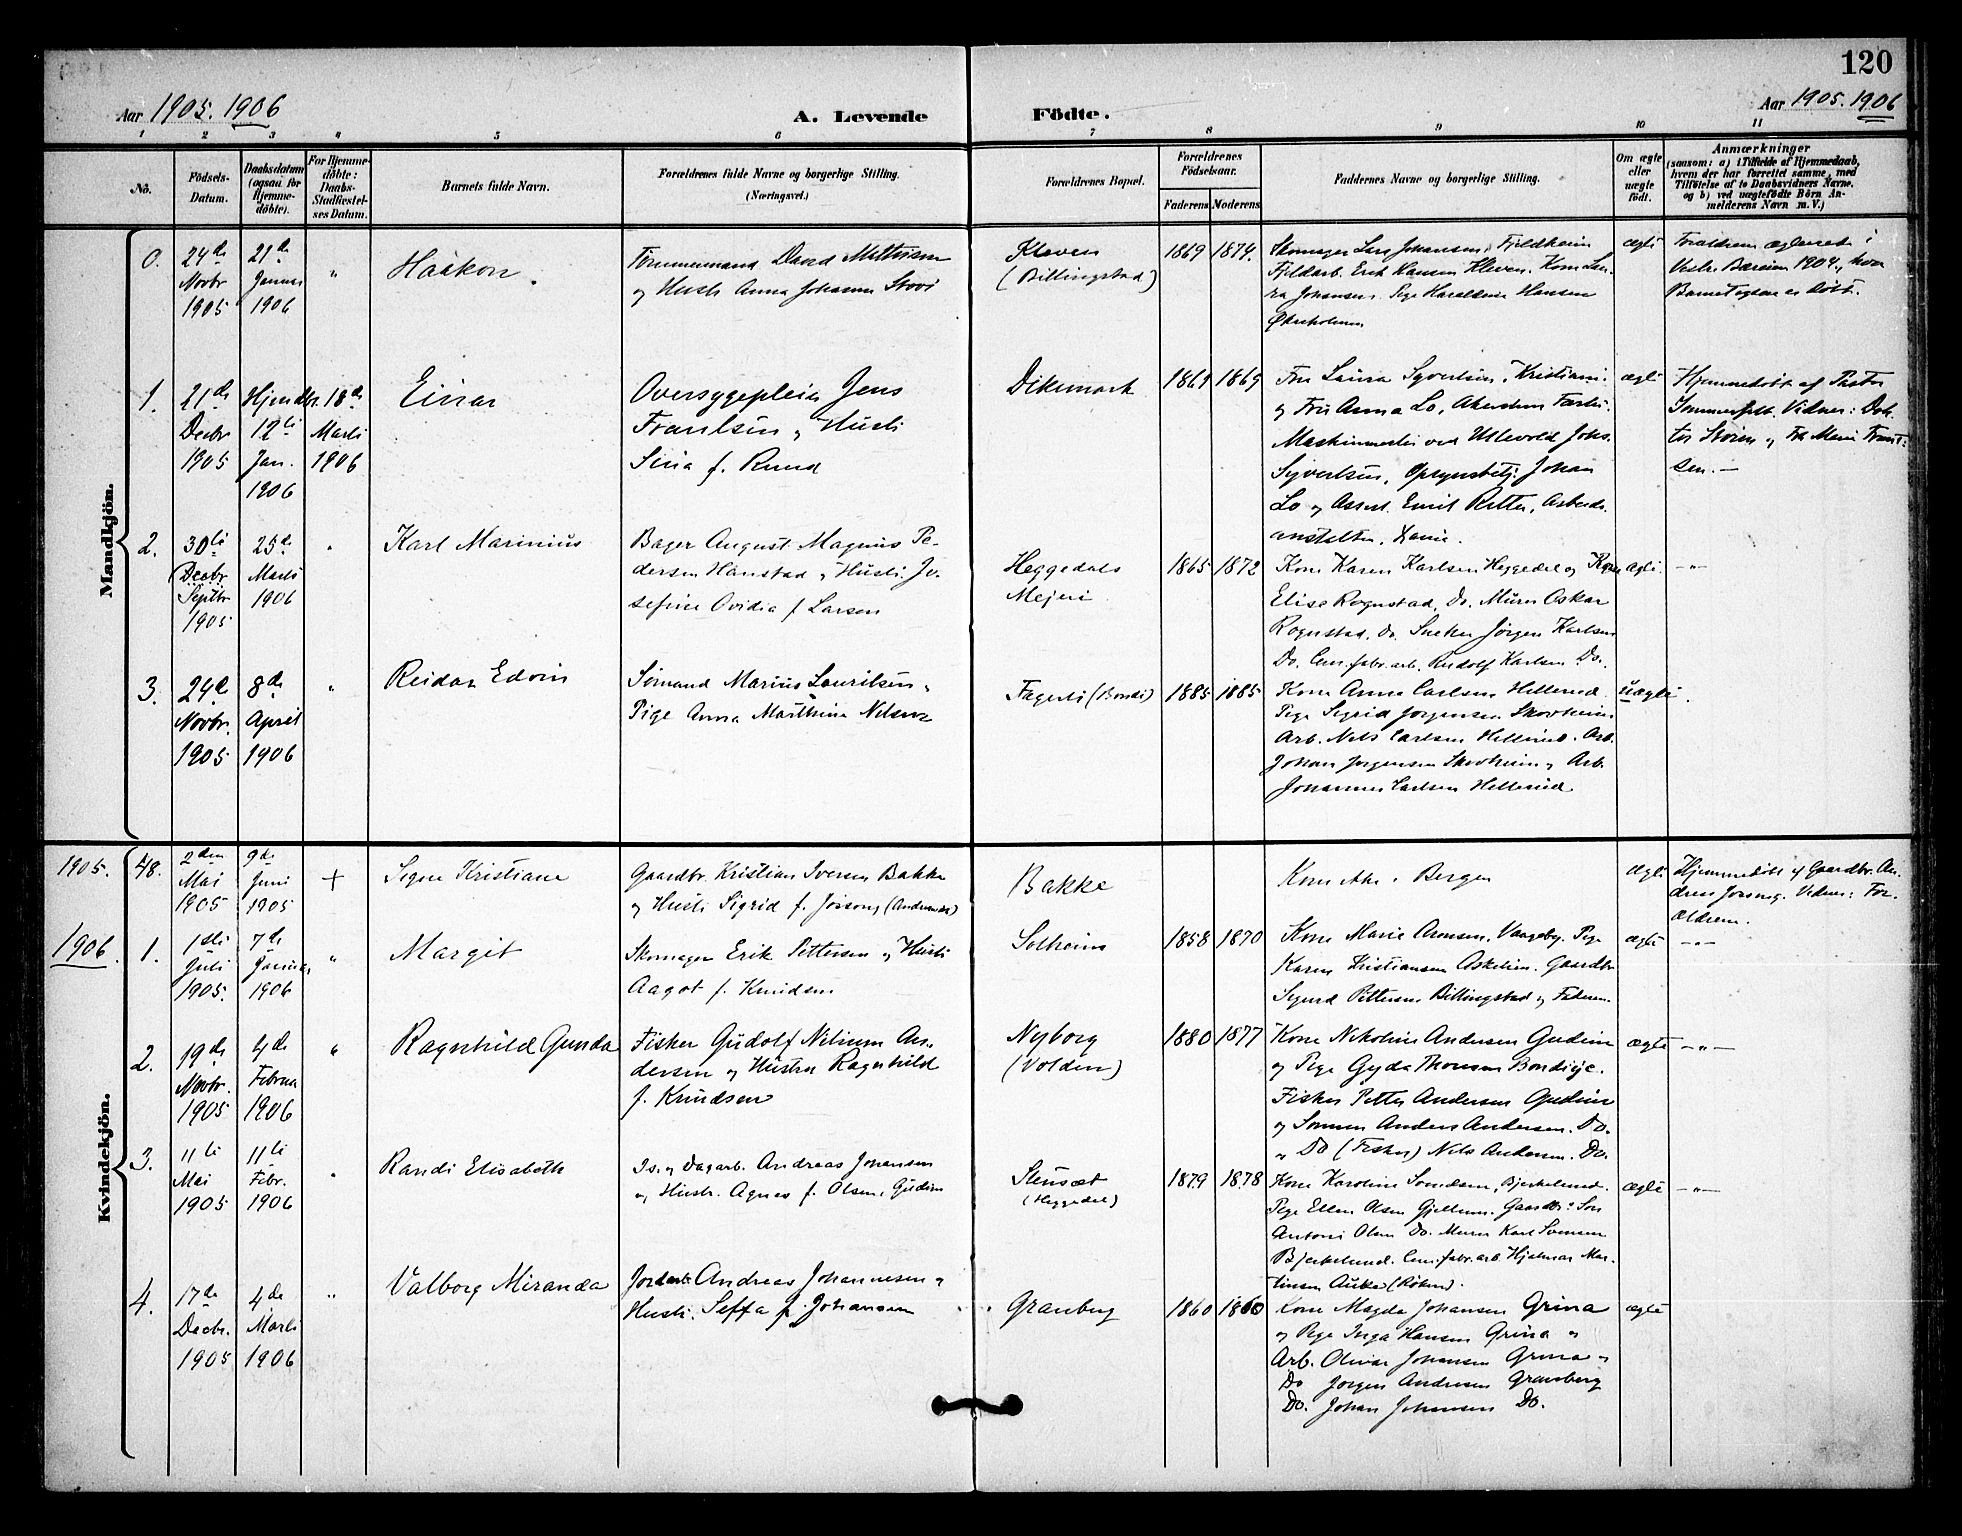 120
Aar 1905. 1906
A. Levende Födte.
Aar 1905. 1906
1 2 3 4 5 6 7 8 9 10 11
No.
Födsels-Datum.
Daabsdatum (ogsaa for Hjemme-döbte).
For Hjemme-döbte: Daabs-Stadfæstel-ses Datum.
Barnets fulde Navn.
Forældrenes fulde Navne og borgerlige Stilling. (Næringsvei.)
Forældrenes Bopæl.
Forældrenes Födselsaar.
Faderens Moderens
Faddernes Navne og borgerlige Stilling.
Om ægte eller uægte födt.
Anmærkninger
(saasom: a) i Tilfælde af Hjemmedaab,
hvem der har forrettet samme, med
Tilföielse af to Daabsvidners Navne,
og b) ved uægtefödte Börn An-
melderens Navn m. V.)
Mandkjön.
0.
24de Novbr 1905
21de Januar 1906
"
Haakon.
Tømmermand David
og Hustr. Anna Johanne
Kleven
(Billingstad)
1869 1874.
Skomager Lars Johansen, Fjeldheim
Fjeldarb. Erik Hansen Kleven. Kone Lau-
ra Johansen. Pige Haraldine Hansen
ægte
Forældrene ægteviet i
Vestre Bærum 1904, hvor
Barnet ogsaa er døbt.
1.
21de Decbr 1905
Hjemdbt. 12te Jan. 1906
18de Marts 1906
Einar
Oversygepleier Jens
Frantsen og Hustr.
Sina f. Ruud
Dikemark
1869 1869
Fru Laura Syvertsen, Kristiania
og Fru Anna Lo, Akershus
Maskinmester ved Ullevold Johs.
Syvertsen, Opsynsbetj. Johan
Lo og Assist. Emil Ritter, Arbeids-
anstalten, Xania.
ægte
Hjemmedøbt af Pastor
Sommerfelt. Vidner: Dok-
tor og Frk Marie Frant-
sen. —
2.
30te Decbr Septbr 1905
25de Marts 1906
"
Karl Marinius
Bager August Magnus Pe-
dersen Hanstad og Hustr. Jo-
sefine Ovidia f. Larsen
Heggedals
Mejeri
1865 1872
Kone Karen Karlsen Heggedal og Kone
Elise Rognstad, Do. Murer Oskar
Rognstad, Do. Sneker Jørgen Karlsen
Do. Cem.fabr.arb. Rudolf Karlsen Do.
ægte.
— " —
3.
24de Novbr. 1905
8de April 1906
"
Reidar Edvin
Sømand Marius Lauritsen
Pige Anna Marthine Nilsen
Fagerli (Bondi)
1885 1885
Kone Anna Carlsen Hellerud.
Pige Sigrid Jørgensen Skovheim
Arb. Nils Carlsen Hellerud. Arb.
Johan Jørgensen Skovheim og Arb.
Johannes Carlsen Hellerud
uægte.
Kvindekjön.
1905.
48.
2den Mai 1905
9de Juni 1905
+
Signe Kristiane
Gaardbr. Kristian Iversen Bakke
og Hustr. Sigrid f. (Andersen)
Bakke
Kone Berger
ægte
Hjemmedøbt af Gaardbr. An-
dreas Vidner: For-
ældrene.
1906.
1.
1ste Juli 1905.
7de Januar 1906
"
Margit
Skomager Erik Pettersen og Hustr.
Aagot f. Knudsen
Solheim
1858 1870
Kone Marie Aronsen, Vaageby. Pige
Karen Kristiansen Askelien. Gaardbr.
Sigurd Pettersen Billingstad og Faderen.
ægte
— " —
2.
19de Novbr. 1905
4de Februar 1906
"
Ragnhild Gunda
Fisker Gudolf Nilsen An-
dersen og Hustru Ragnhild
f. Knudsen
Nyborg
(Volden)
1880 1877
Kone Nikoline Andersen Gudim
og Pige Gyda Thoresen Bondi
Fisker Petter Andersen Gudim
og Sømm. Anders Andersen. Do.
" Do (Fisker) Nils Andersen. Do.
ægte
— " —
3.
11te Mai 1905
11te Febr. 1906
"
Randi Elisabeth
Is. og Dagarb. Andreas Johansen
og Hustr. Agnes f. Olsen, Gudim
Stensæt
(Heggedal)
1879 1878
Kone Karoline Bjerkelund.
Pige Ellen Olsen Gjellum. Gaardbr. Søn
Antoni Olsen Do. Murer Karl Svensen
Bjerkelund. Cem.fabr.arb. Hjalmar Mar-
tinsen (Røken).
ægte
— " —
4.
17de Decbr. 1905
4de Marts 1906
"
Valborg Miranda
Jordarb. Andreas Johannesen og
Hustr. Seffa f. Johansen
Grausberg
1860 1860
Kone Magda Johansen Grina
og Pige Inga Hansen Grina og
Arb. Olivar Johansen Grina og
Do Jørgen Andresen Grausberg
Do. Johan Johansen Do.
ægte